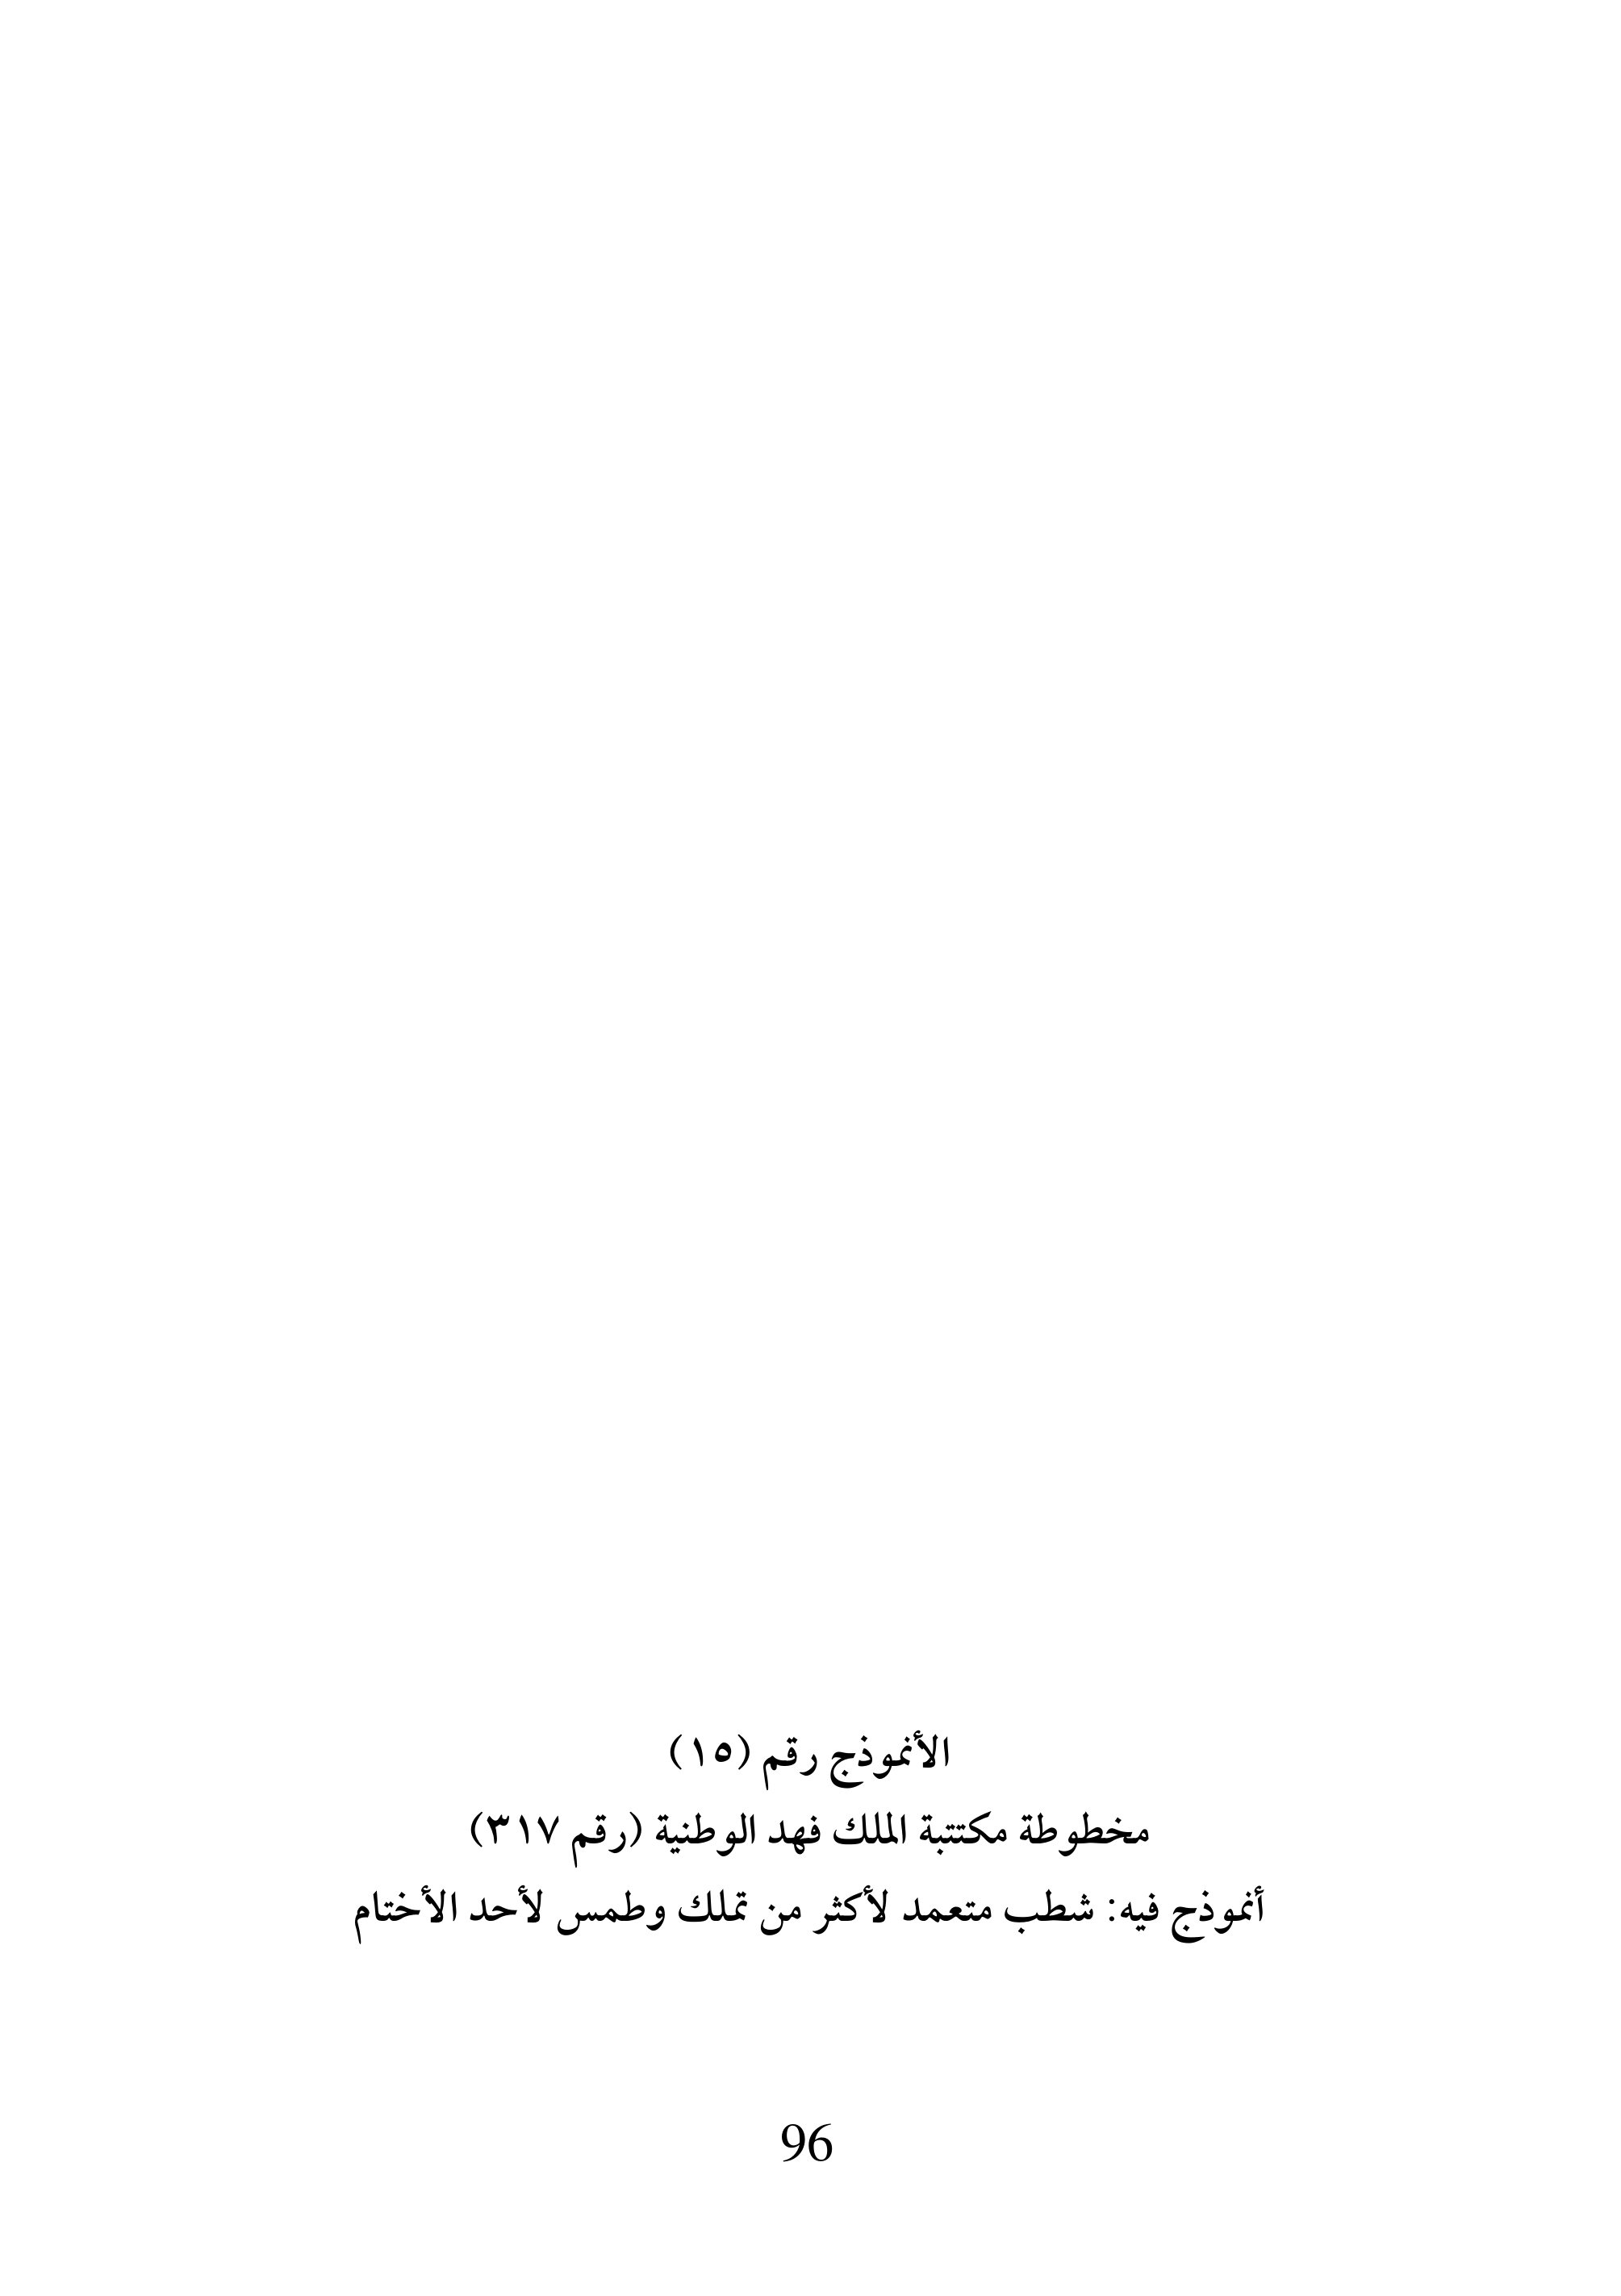 الأنموذج رقم (١٥)
مخطوطة مكتبة الملك فهد الوطنية (رقم ٣١٧)
أنموذج فيه: شطب متعمد لأكثر من تملك وطمس لأحد الأختام
96